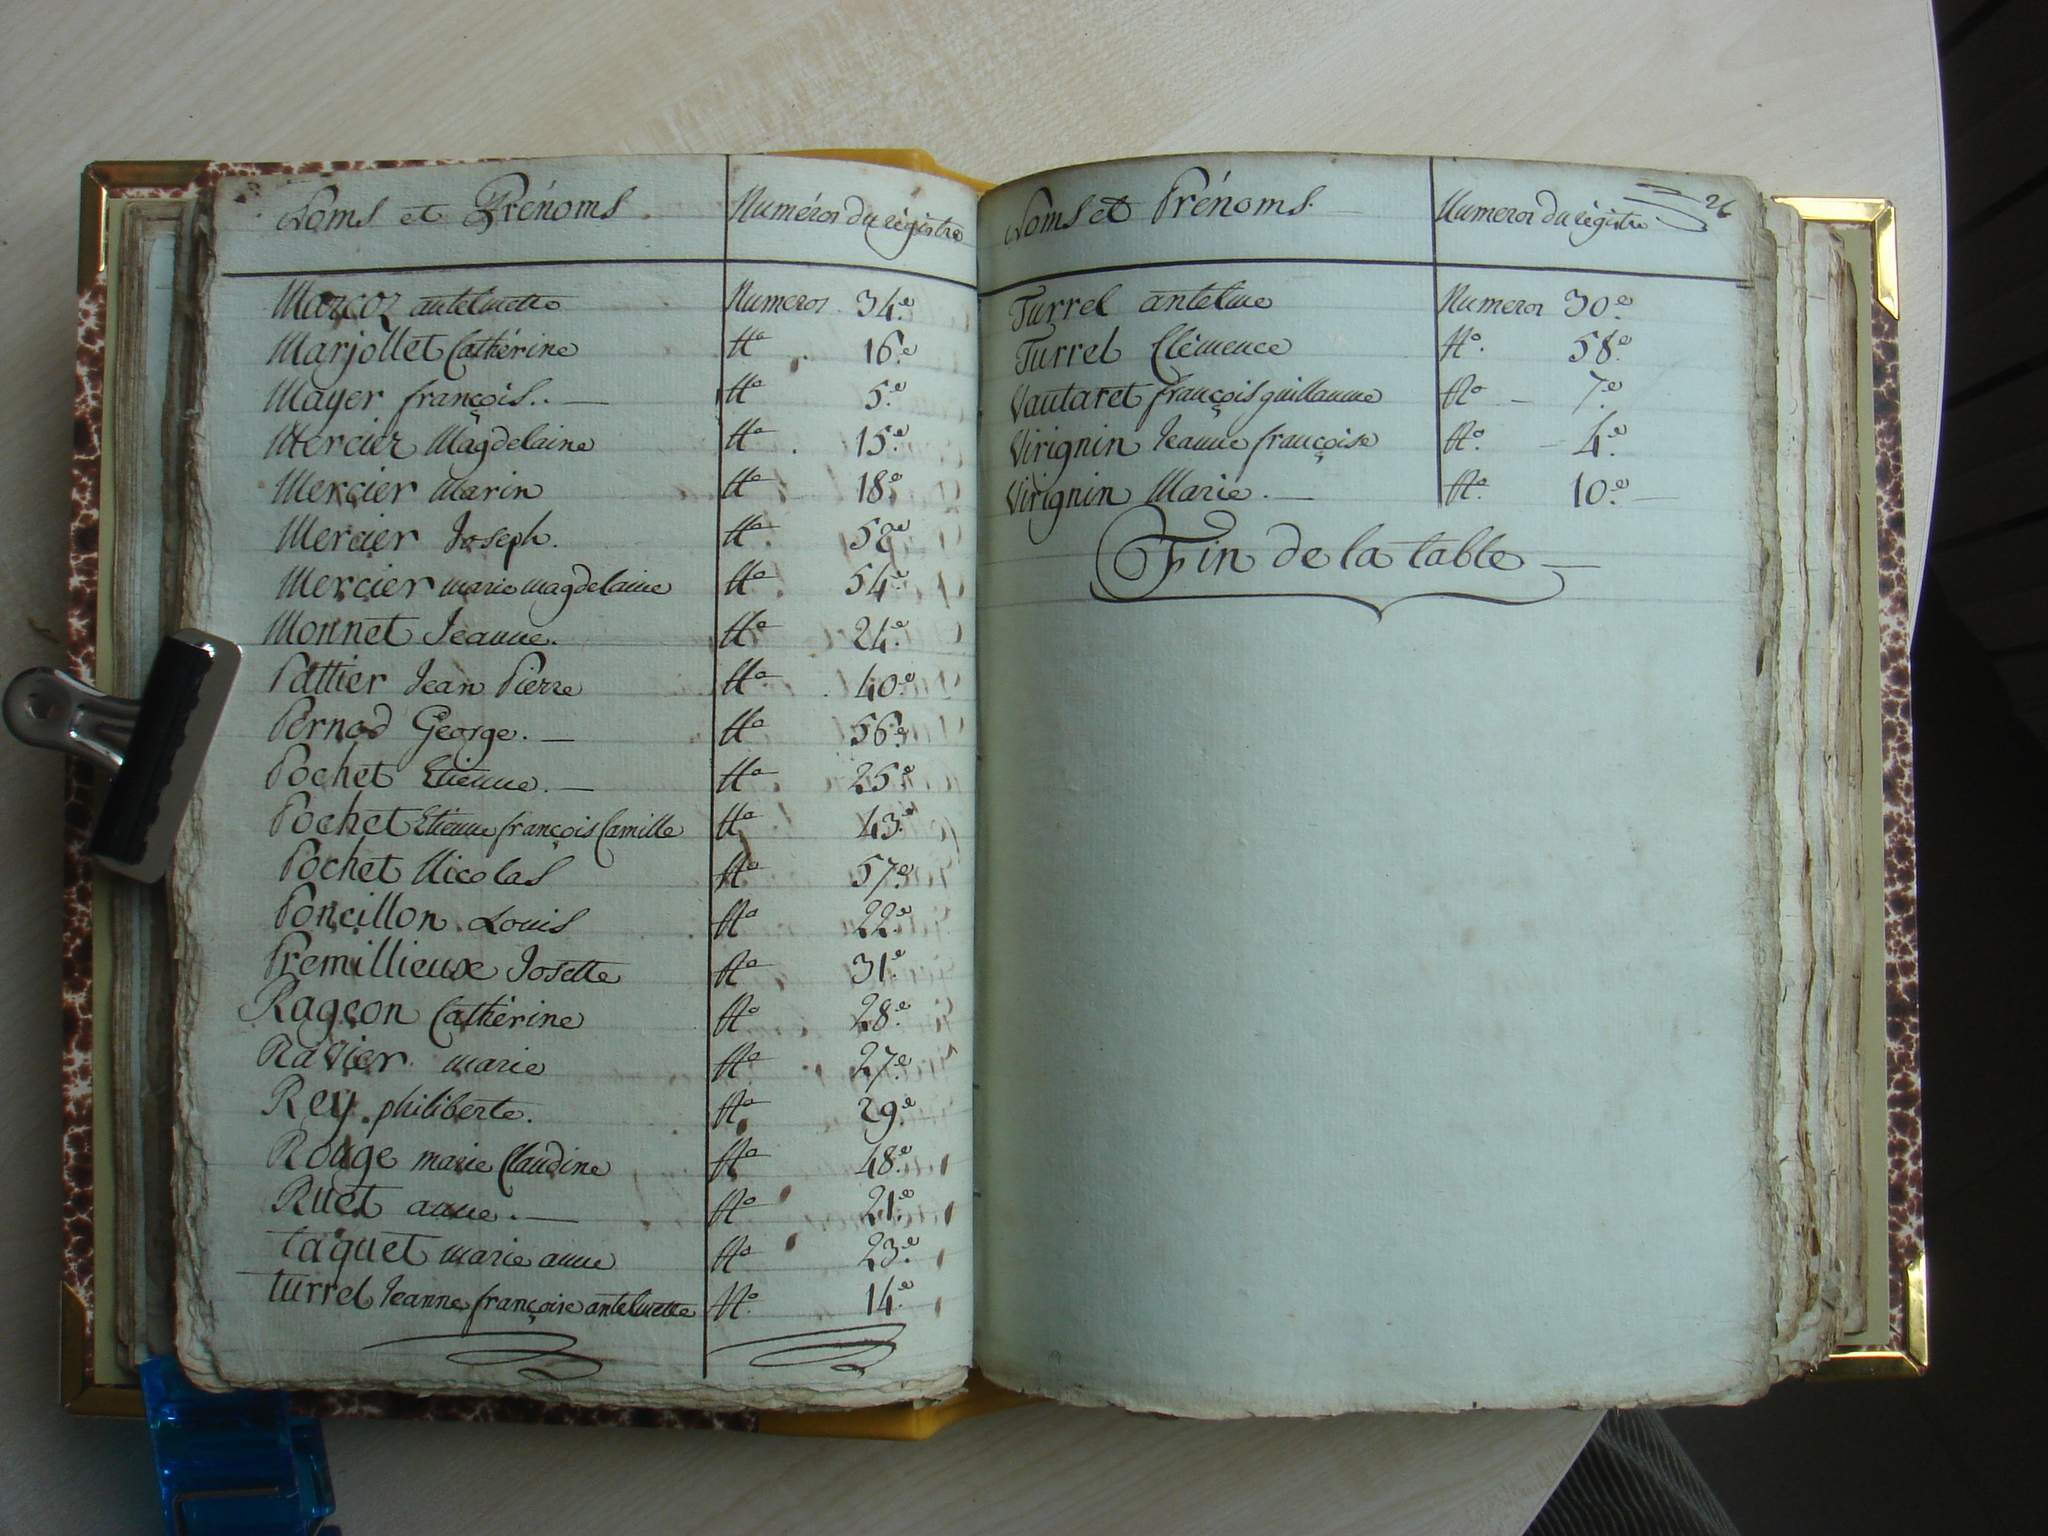 Noms et Prénoms. Numéros du régistre
Marcoz antelmette Numeros 34.e
Marjollet Cathérine No. 16.e
Mayer françois. No 5.e
Mercier Magdelaine No. 15.e
Mercier Marin No 18.e
Mercier Joseph. No. 52.e
Mercier marie magdelaine No. 54.e
Monnet Jeanne. No 24.e
Pattier Jean Pierre No. 40.e
Pernod George. No 56.e
Pochet Etienne. No 25.e
Pochet Etienne françois Camille No 43.e
Pochet Nicolas No 57.e
Poncillon Louis No 22.e
Premillieux Josette No 31.e
Rageon Cathérine No 28.e
Ravier marie No 27.e
Rey philiberte. No. 29.e
Rouge marie Claudine No 48.e
Ruet anne. No 21.e
taquet marie anne No 23.e
turrel Jeanne françoise antelmette No. 14.e
26
Noms et Prénoms. Numeros du régistre
Turrel antelme Numeros 30.e
Turrel Clémence No. 58.e
Vautaret françois guillaume No 7.e
Virignin Jeanne françoise No. 4.e
Virignin Marie. No. 10.e
Fin de la table